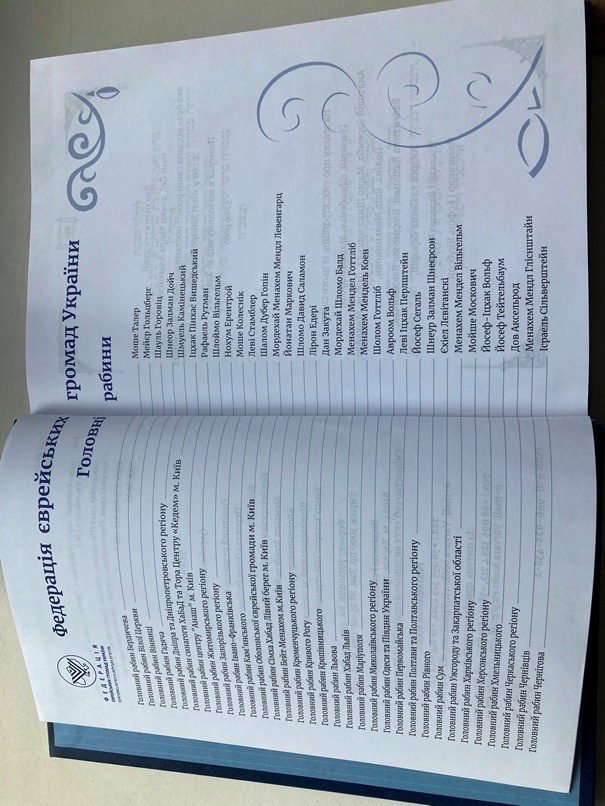 Федерація єврейських громад України
Головні рабини
ФЕДЕРАЦІЯ
Головний рабин Бердичева Моше Талер
Головний рабин Білої Церкви Мейєр Гольцберг
Головний рабин Вінниці Шауль Горовіц
Головний рабин Гадяча Шнеор Залман Дойч
Головний рабин Дніпра та Дніпропетровського регіону Шмуель Камінецький
Головний рабин синагоги ХаБаД та Тора Центру «Кедем» м. Київ Іцхак Пінхас Вишедський
Головний рабин центру "Анаш" м. Київ Рафаель Рутман
Головний рабин Житомирського регіону Шлоймо Вільгельм
Головний рабин Запорізького регіону Нохум Ерентрой
Головний рабин Івано-Франківська Моше Колеснік
Головний рабин Кам'янського Леві Стамблер
Головний рабин Оболонської єврейської громади м. Київ Шалом Дубер Гопін
Головний рабин Сімха Хабад Лівий берег м. Київ Мордехай Менахем Мендл Левенгарц
Головний рабин Бейт Менахем м.Київ Йонатан Маркович
Головний рабин Кременчуцького регіону Шломо Давид Саламон
Головний рабин Кривого Рогу Лірон Едері
Головний рабин Кропивницького Дан Закута
Головний рабин Львова Мордехай Шломо Балд
Головний рабин Хабад Львів Менахем Мендел Готтліб
Головний рабин Маріуполя Менахем Мендель Коен
Головний рабин Миколаївського регіону Шолом Готтліб
Головний рабин Одеси та Півдня України Авроом Вольф
Головний рабин Первомайська Леві Іцхак Перлштейн
Головний рабин Полтави та Полтавського регіону Йосеф Сегаль
Головний рабин Рівного Шнеур Залман Шнеєрсон
Головний рабин Сум Єхіел Левітанскі
Головний рабин Ужгороду та Закарпатської області Менахем Мендел Вільгельм
Головний рабин Харківського регіону Мойше Москович
Головний рабин Херсонського регіону Йосеф-Іцхак Вольф
Головний рабин Хмельницького Йосеф Тейтельбаум
Головний рабин Черкаського регіону Дов Аксельрод
Головний рабин Чернівців Менахем Мендл Глісніштайн
Головний рабин Чернігова Ісраель Сільверштейн